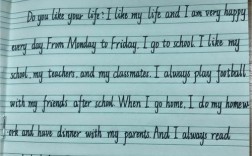 Do you like your life? I like my life and I am very happy
every day. From Monday to Friday, I go to school. I like my
school, my teachers, and my classmates. I always play football
with my friends after school. When I go home, I do my homew
ork and have dinner with my parents. And I always read